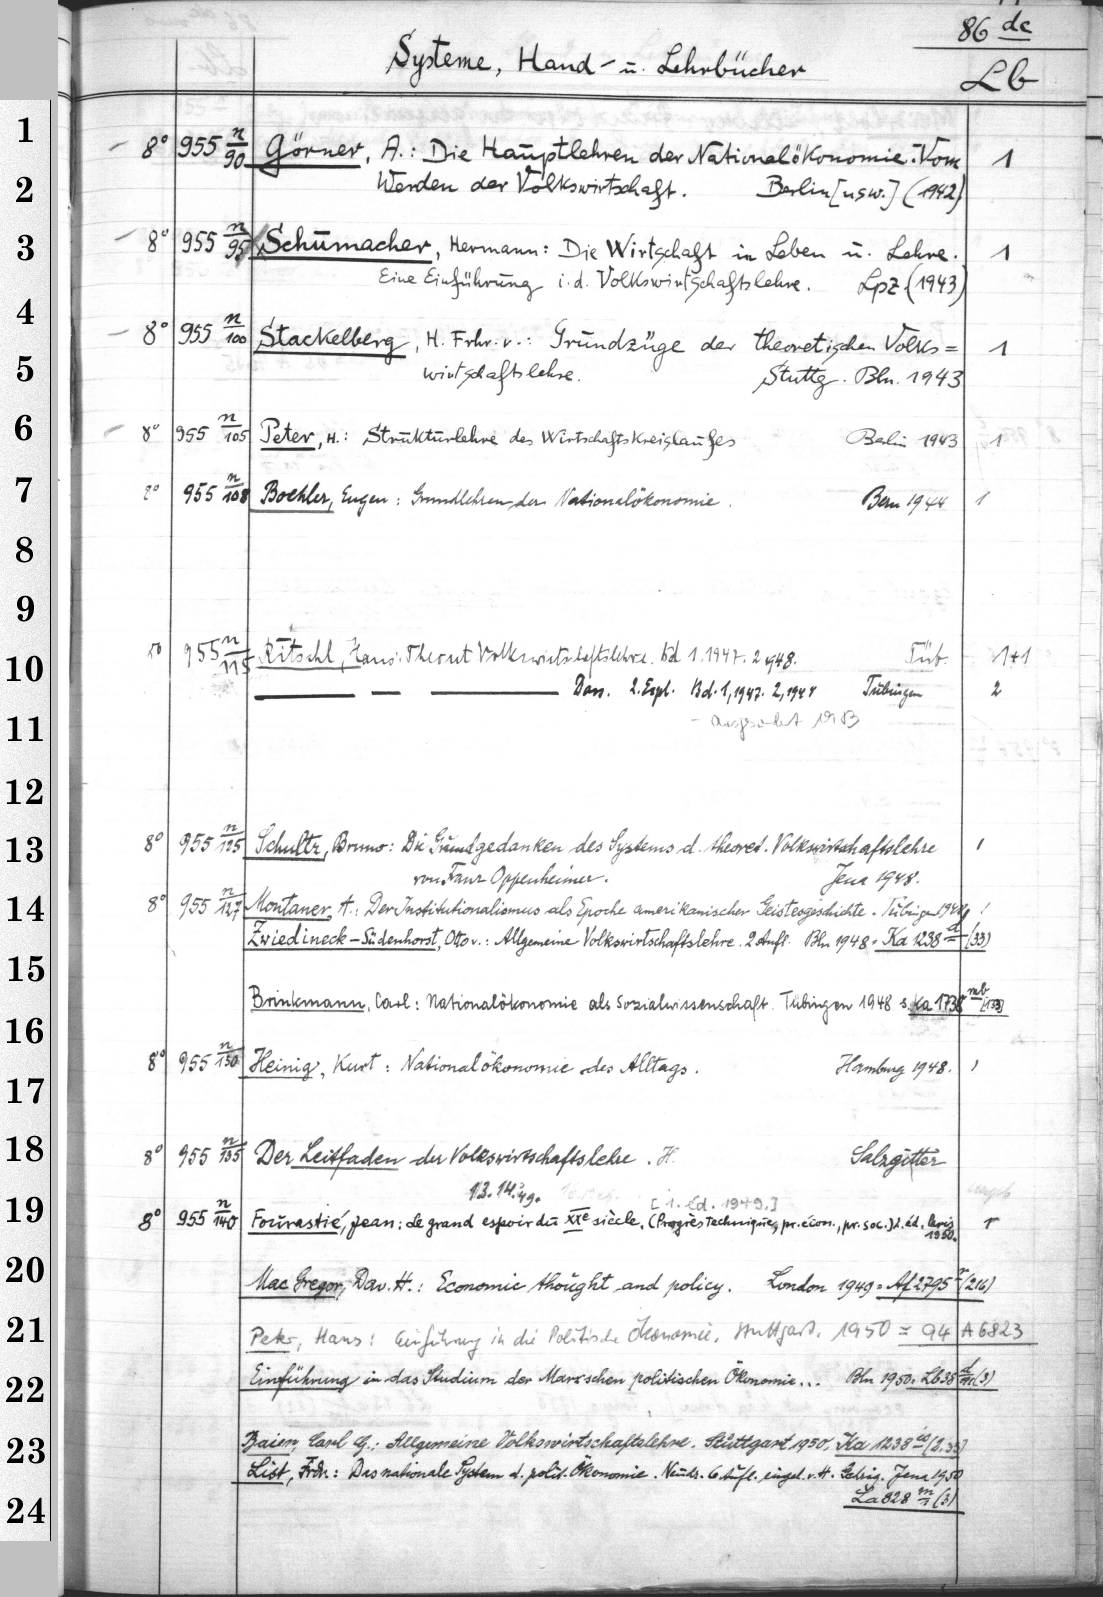 86 dc
Systeme, Hand- u. Lehrbücher
Lb
1
– 8° 955 n/90 Görner, A.: Die Hauptlehren der Nationalökonomie: Vom 1
2
Werden der Volkswirtschaft. Berlin [usw.] (1942)
3
– 8° 955 n/95 Schumacher, Hermann: Die Wirtschaft in Leben u. Lehre. 1
Eine Einführung i. d. Volkswirtschaftslehre. Lpz. (1943)
4
– 8° 955 n/100 Stackelberg, H. Frhr. v.: Grundzüge der theoretischen Volks= 1
5
wirtschaftslehre. Stuttg. Bln. 1943
6
– 8° 955 n/105 Peter, H.: Strukturlehre des Wirtschaftskreislaufes Berlin 1943 1
7
8° 955 n/108 Boehler, Eugen: Grundlehren der Nationalökonomie. Bern 1944 1
8
9
10
8° 955 n/115 Ritschl, Hans: Theoret Volkswirtschaftslehre. Bd 1.1947. 2 1948. Tüb. 1+1
— — — Dass. 2. Expl. Bd. 1, 1947. 2, 1948 Tübingen 2
11
– 1983
12
13
8° 955 n/125 Schultz, Bruno: Die Grundgedanken des Systems d. theoret. Volkswirtschaftslehre 1
von Franz Oppenheimer. Jena 1948.
14
8° 955 n/127 Montaner, A.: Der Institutionalismus als Epoche amerikanischer Geistesgeschichte. Tübingen 1948 1
Zwiedineck-Südenhorst, Otto v.: Allgemeine Volkswirtschaftslehre. 2 Aufl. Bln 1948 = Ka 1238 d (33)
15
Brinkmann, Carl: Nationalökonomie als Sozialwissenschaft. Tübingen 1948 s. Ka 1738 mb
16
8° 955 n/130 Heinig, Kurt: Nationalökonomie des Alltags. Hamburg 1948. 1
17
18
8° 955 n/135 Der Leitfaden der Volkswirtschaftslehre. H. Salzgitter
13. 14. 49.
[1. éd. 1949.]
19
8° 955 n/140 Fourastié, Jean: Le grand espoir du XXe siècle. (Progrès technique, pr. écon., pr. soc.) 2. éd. Paris 1950. 1
20
Mac Gregor, Dav. H.: Economic thought and policy. London 1949 = Af 2795 r (216)
21
Peter, Hans: Einführung in die Politische Ökonomie. Stuttgart. 1950 = 94 A 6823
22
Einführung in das Studium der Marxschen politischen Ökonomie... Bln 1950. Lb 38 (3)
23
Baier, Carl G.: Allgemeine Volkswirtschaftslehre. Stuttgart 1950. Ka 1238
List, Frdr.: Das nationale System d. polit. Ökonomie. Neudr. 6. Aufl. eingel. v. H. Gehrig. Jena 1950
24
La 828 m/1 (3)